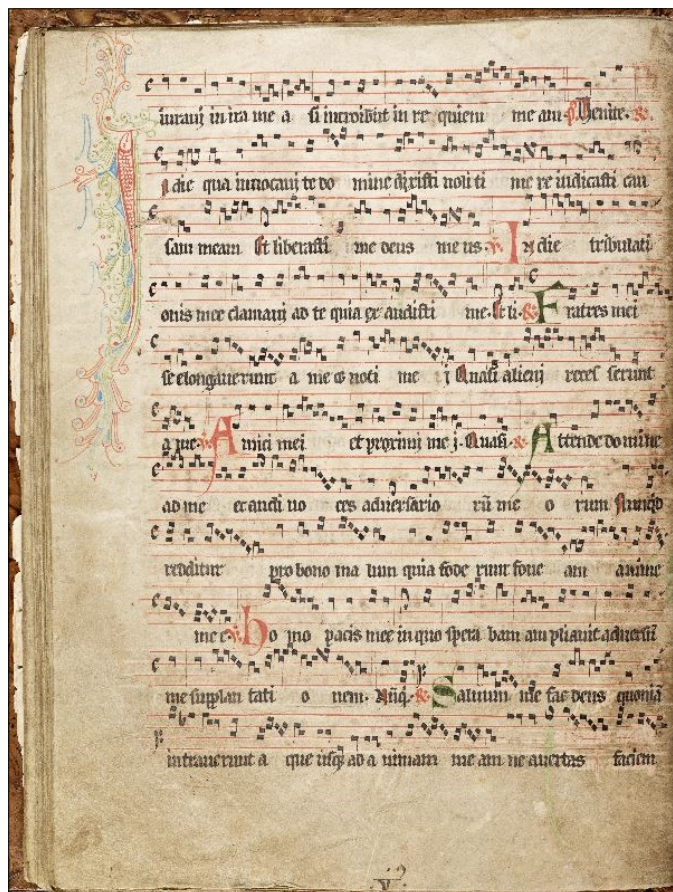 iuraui in ira me a si introibūt in re quiem me am. p̄s Uenite. ℟.
In die qua inuocaui te do mine dixisti noli ti me re iudicasti cau
sam meam Et liberasti me deus me us. ℣. In die tribulati
onis mee clamaui ad te quia ex audisti me. Et li. ℟. Fratres mei
se elongauerunt a me et noti me i Quasi alieni reces serunt
a me. ℣. Amici mei et proximi me i. Quasi. ℟. Attende domine
ad me et audi uo ces aduersario rū me o rum Nunqd
redditur pro bono ma lum quia fode runt foue am anime
me e. ℣. ho mo pacis mee in quo spera bam am pliauit aduersū
me supplan tati o nem. Nūq. ℟. Saluum me fac deus quoniā
intrauerunt a que usq ad a nimam me am ne auertas faciem